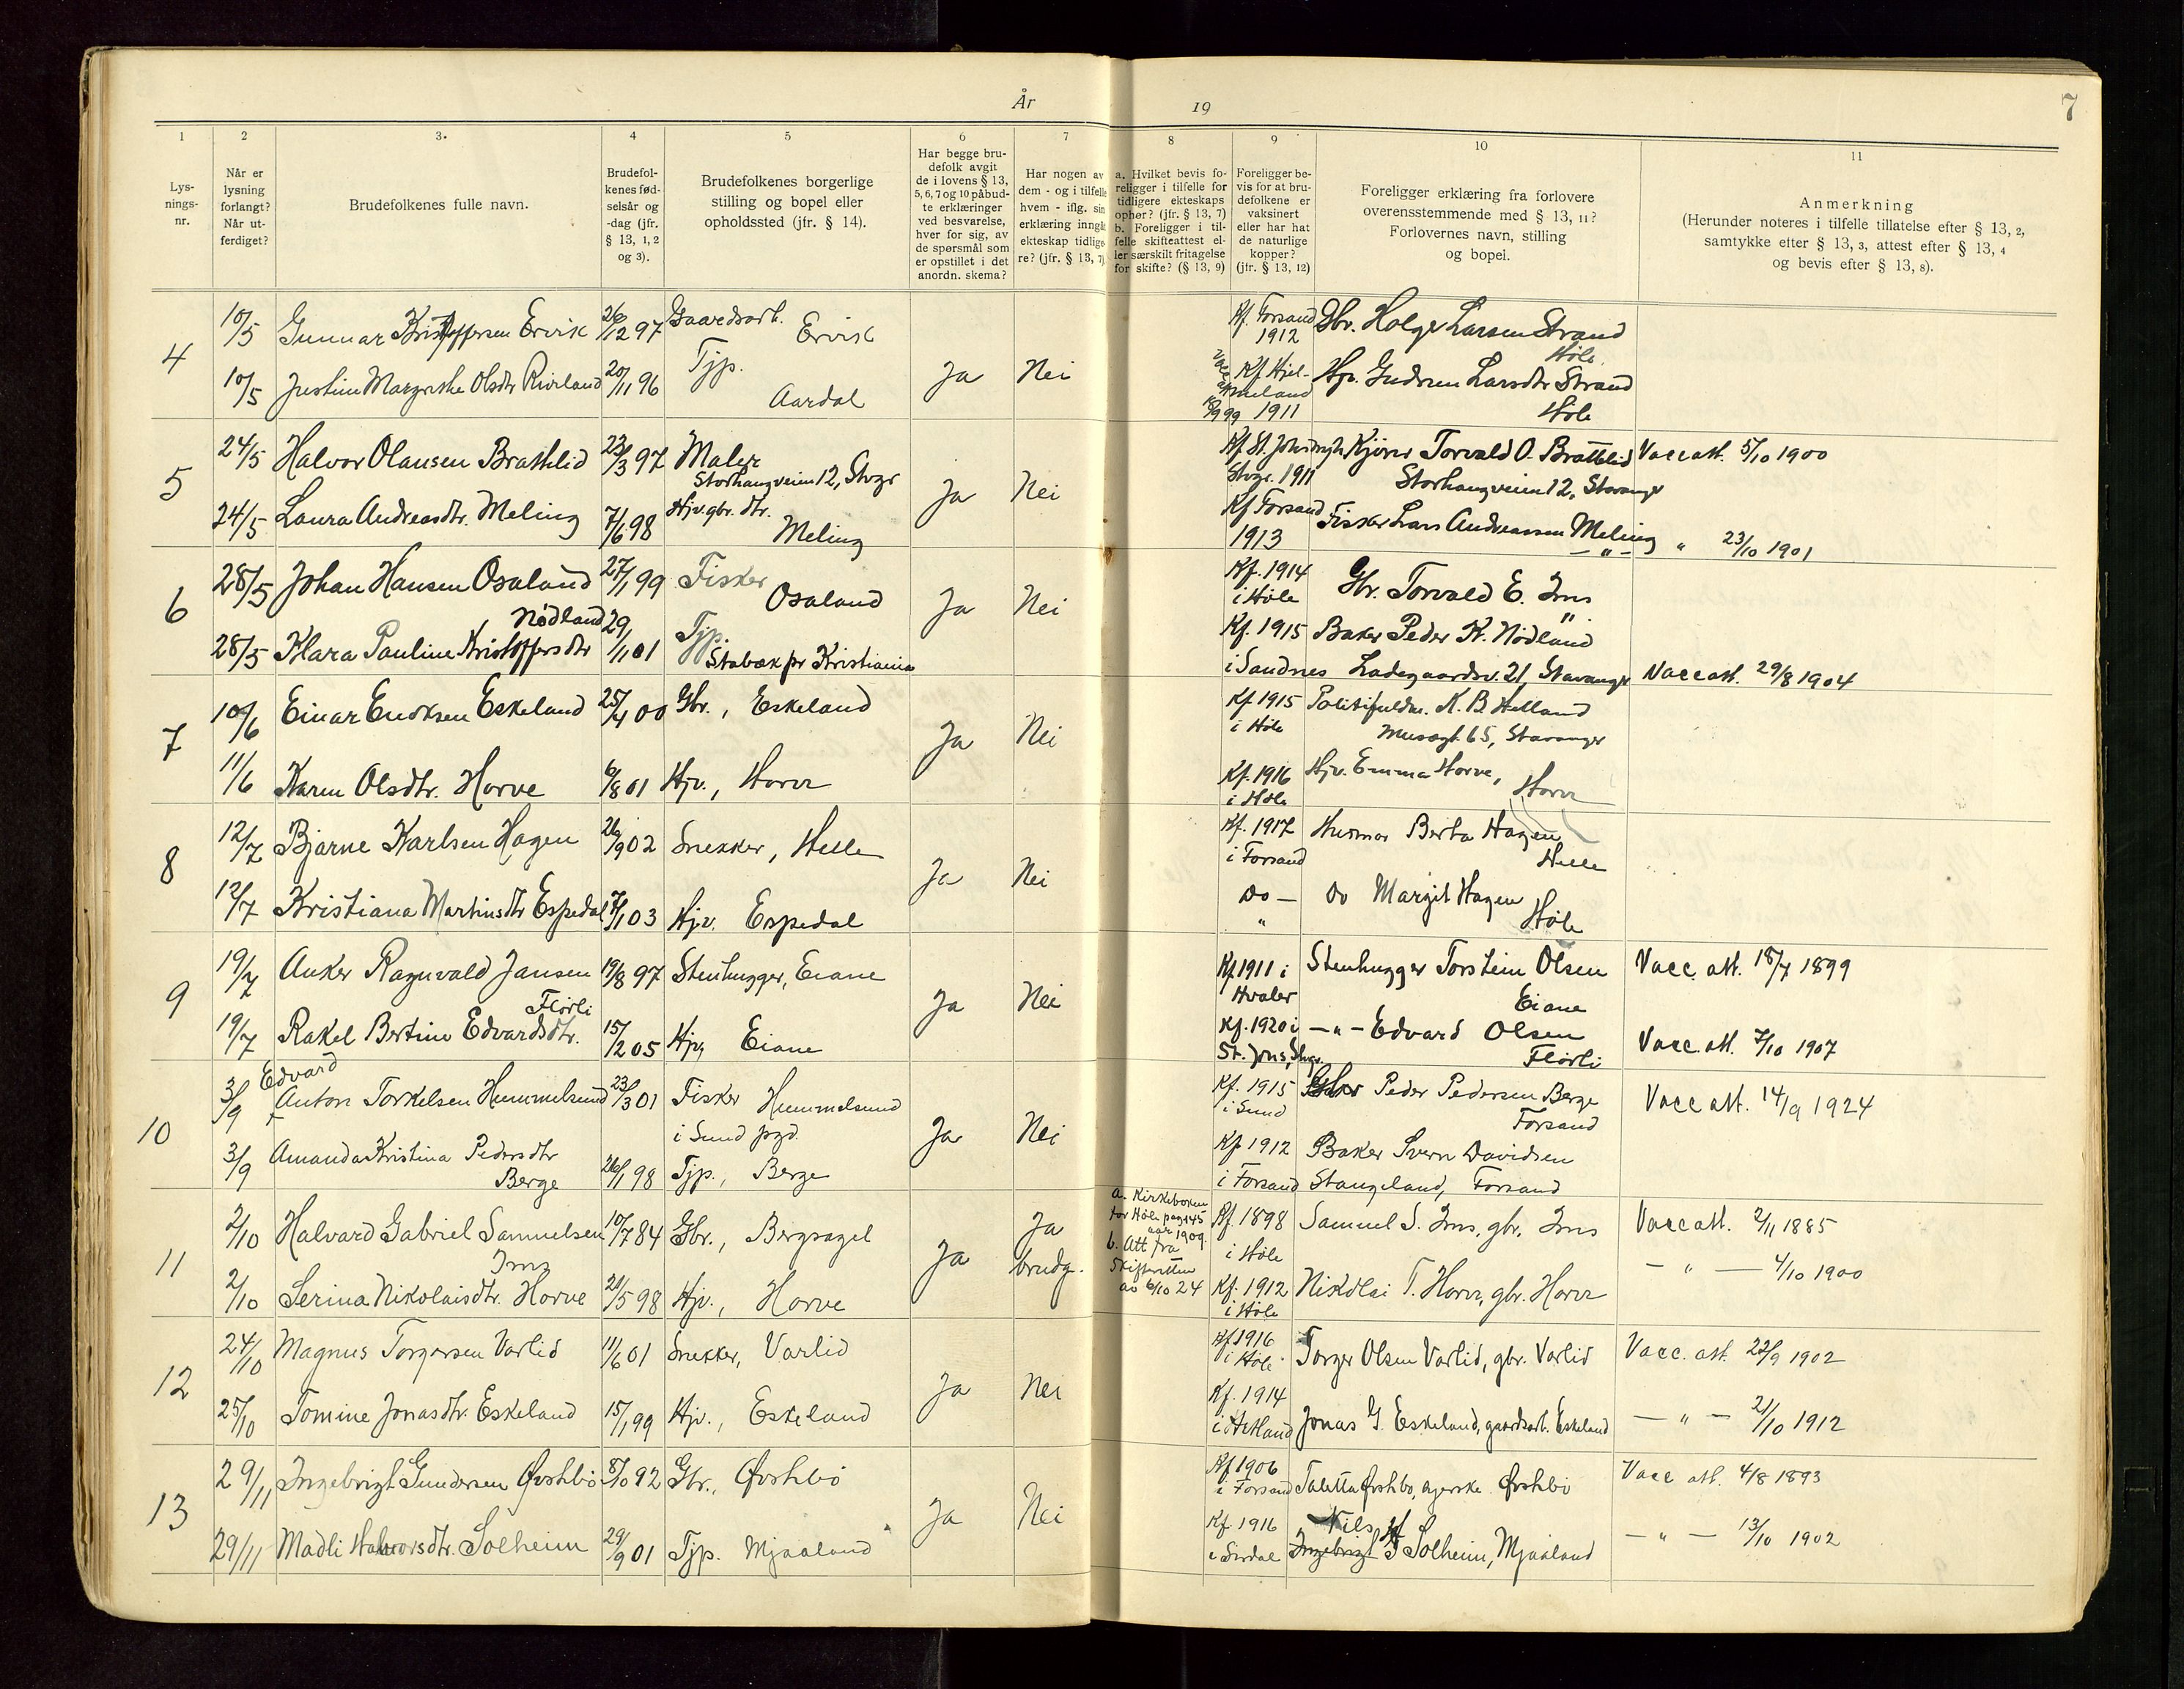 År 19
7
1
2
3.
4
5
6
7
8
9
10
11
Lys-
nings-
nr.
Når er
lysning
forlangt?
Når ut-
ferdiget?
Brudefolkenes fulle navn.
Brudefol-
kenes fød-
selsår og
-dag (jfr.
§ 13, 1, 2
og 3).
Brudefolkenes borgerlige
stilling og bopel eller
opholdssted (jfr. § 14).
Har begge bru-
defolk avgit
de i lovens § 13,
5, 6, 7 og 10 påbud-
te erklæringer
ved besvarelse,
hver for sig, av
de spørsmål som
er opstillet i det
anordn. skema?
Har nogen av
dem - og i tilfelle
hvem - iflg. sin
erklæring inngåt
ekteskap tidlige-
re? (jfr. § 13, 7).
a. Hvilket bevis fo-
religger i tilfelle for
tidligere ekteskaps
opher? (jfr. § 13, 7)
b. Foreligger i til-
felle skifteattest el-
ler særskilt fritagelse
for skifte? (§ 13, 9)
Foreligger be-
vis for at bru-
defolkene er
vaksinert
eller har hat
de naturlige
kopper?
(jfr. § 13, 12)
Foreligger erklæring fra forlovere
overensstemmende med § 13, 11?
Forlovernes navn, stilling
og bopel.
Anmerkning
(Herunder noteres i tilfelle tillatelse efter § 13, 2,
samtykke efter § 13, 3, attest efter § 13, 4
og bevis efter § 13, 8).
4
10/5 Gunnar Kristoffersen Ervik 26/12 97 Gaardsarb. Ervik
Kf. Forsand 1912 Gbr. Holger Larsen Strand Høle
10/5 Justine Margrethe Olsdtr 20/11 96 Tjp. Aardal Ja Nei
Kf Hjelmeland 1911 Hjv. Gudrun Larsdtr Strand Høle
5
24/5 Halvor Olausen Brattlid 23/3 97 Maler Storhaugveien 12, Stvgr
Stvgr. 1911 Torvald O. Brattlid Storhaugveien 12, Stavanger Vacc att. 5/10 1900
24/5 Laura Andreasdtr. Meling 7/6 98 Hjv. gbr. dtr. Meling Ja Nei
Kf Forsand 1913 Fisker Lars Andreassen Meling — " — " 23/10 1901
6
28/5 Johan Hansen Osaland 27/1 99 Fisker Osaland Ja Nei
Kf. 1914 i Høle Gbr. Torvald E. Ims "
28/5 Klara Pauline Kristoffersdtr Nødland 29/1 01 Tjp. Stabæk pr Kristiania
Kf. 1915 i Sandnes Baker Peder K. Nødland Ladegaardsv. 21, Stavanger Vacc att. 29/8 1904
7
10/6 Einar Endresen Eskeland 25/4 00 Gbr., Eskeland Ja Nei
Kf 1915 i Høle K. B. Helland Musægt. 65, Stavanger
11/6 Karen Olsdtr. Horve 6/8 01 Hjv., Horve
Kf. 1916 i Høle Hjv. Emma Horve, Horve
8
12/7 Bjarne Karlsen Hagen 26/9 02 Snekker, Helle Ja Nei
Kf. 1917 i Forsand Husmor Berta Hagen Helle
12/7 Kristiana Martinsdtr Espedal 7/1 03 Hjv. Espedal
Do — " Do Margit Hagen Høle
9
19/7 Anker Ragnvald Jansen 19/8 97 Stenhugger, Eiane Ja Nei
Kf 1911 i Hvaler Stenhugger Torstein Olsen Eiane Vacc. att. 18/7 1899
19/7 Rakel Bertine Edvardsdtr. Flörli 15/2 05 Hjv, Eiane
Kf. 1920 i St. Johs, Stvgr. — " — Edvard Olsen Flörli Vacc. att. 7/10 1907
10
3/9 Edvard Anton Torkelsen Hummelsund 23/3 01 Fisker Hummelsund i Sund pgd. Ja Nei
Kf. 1915 i Sund Peder Pedersen Berge Forsand Vacc att. 14/9 1924
3/9 Amanda Kristina Pedersdtr Berge 26/1 98 Tjp., Berge
Kf 1912 i Forsand Baker Svern Davidsen Stangeland, Forsand
11
2/10 Halvard Gabriel Samuelsen Ims 10/7 84 Gbr., Bergsagel Ja Ja brudg.
a. Kirkeboken for Høle pag 145 aar 1909.
b. Att fra Skifteretten av 6/10 24
Kf. 1898 i Høle Samuel S. Ims, gbr. Ims Vacc att. 2/11 1885
2/10 Serina Nikolaisdtr. Horve 21/5 98 Hjv., Horve
Kf. 1912 i Høle Nikolai T. Horve, gbr. Horve — " — 4/10 1900
12
24/10 Magnus Torgersen Varlid 11/6 01 Snekker, Varlid Ja Nei
Kf 1916 i Høle Torger Olsen Varlid, gbr. Varlid Vacc. att. 22/9 1902
25/10 Tomine Jonasdtr. Eskeland 15/1 99 Hjv., Eskeland
Kf. 1914 i Hetland Jonas G. Eskeland, gaardsarb. Eskeland — " — 21/10 1912
13
29/11 Ingebrigt Gundersen Øvstebö 8/10 92 Gbr., Øvstebö Ja Nei
Kf 1906 i Forsand Taletta Øvstebö, Øvstebö Vacc att. 4/8 1893
29/11 Madli Halvorsdtr. Solheim 29/9 01 Tjp. Mjaaland
Kf. 1916 i Sirdal Nils H Ingebrigt Solheim, Mjaaland — " — 13/10 1902